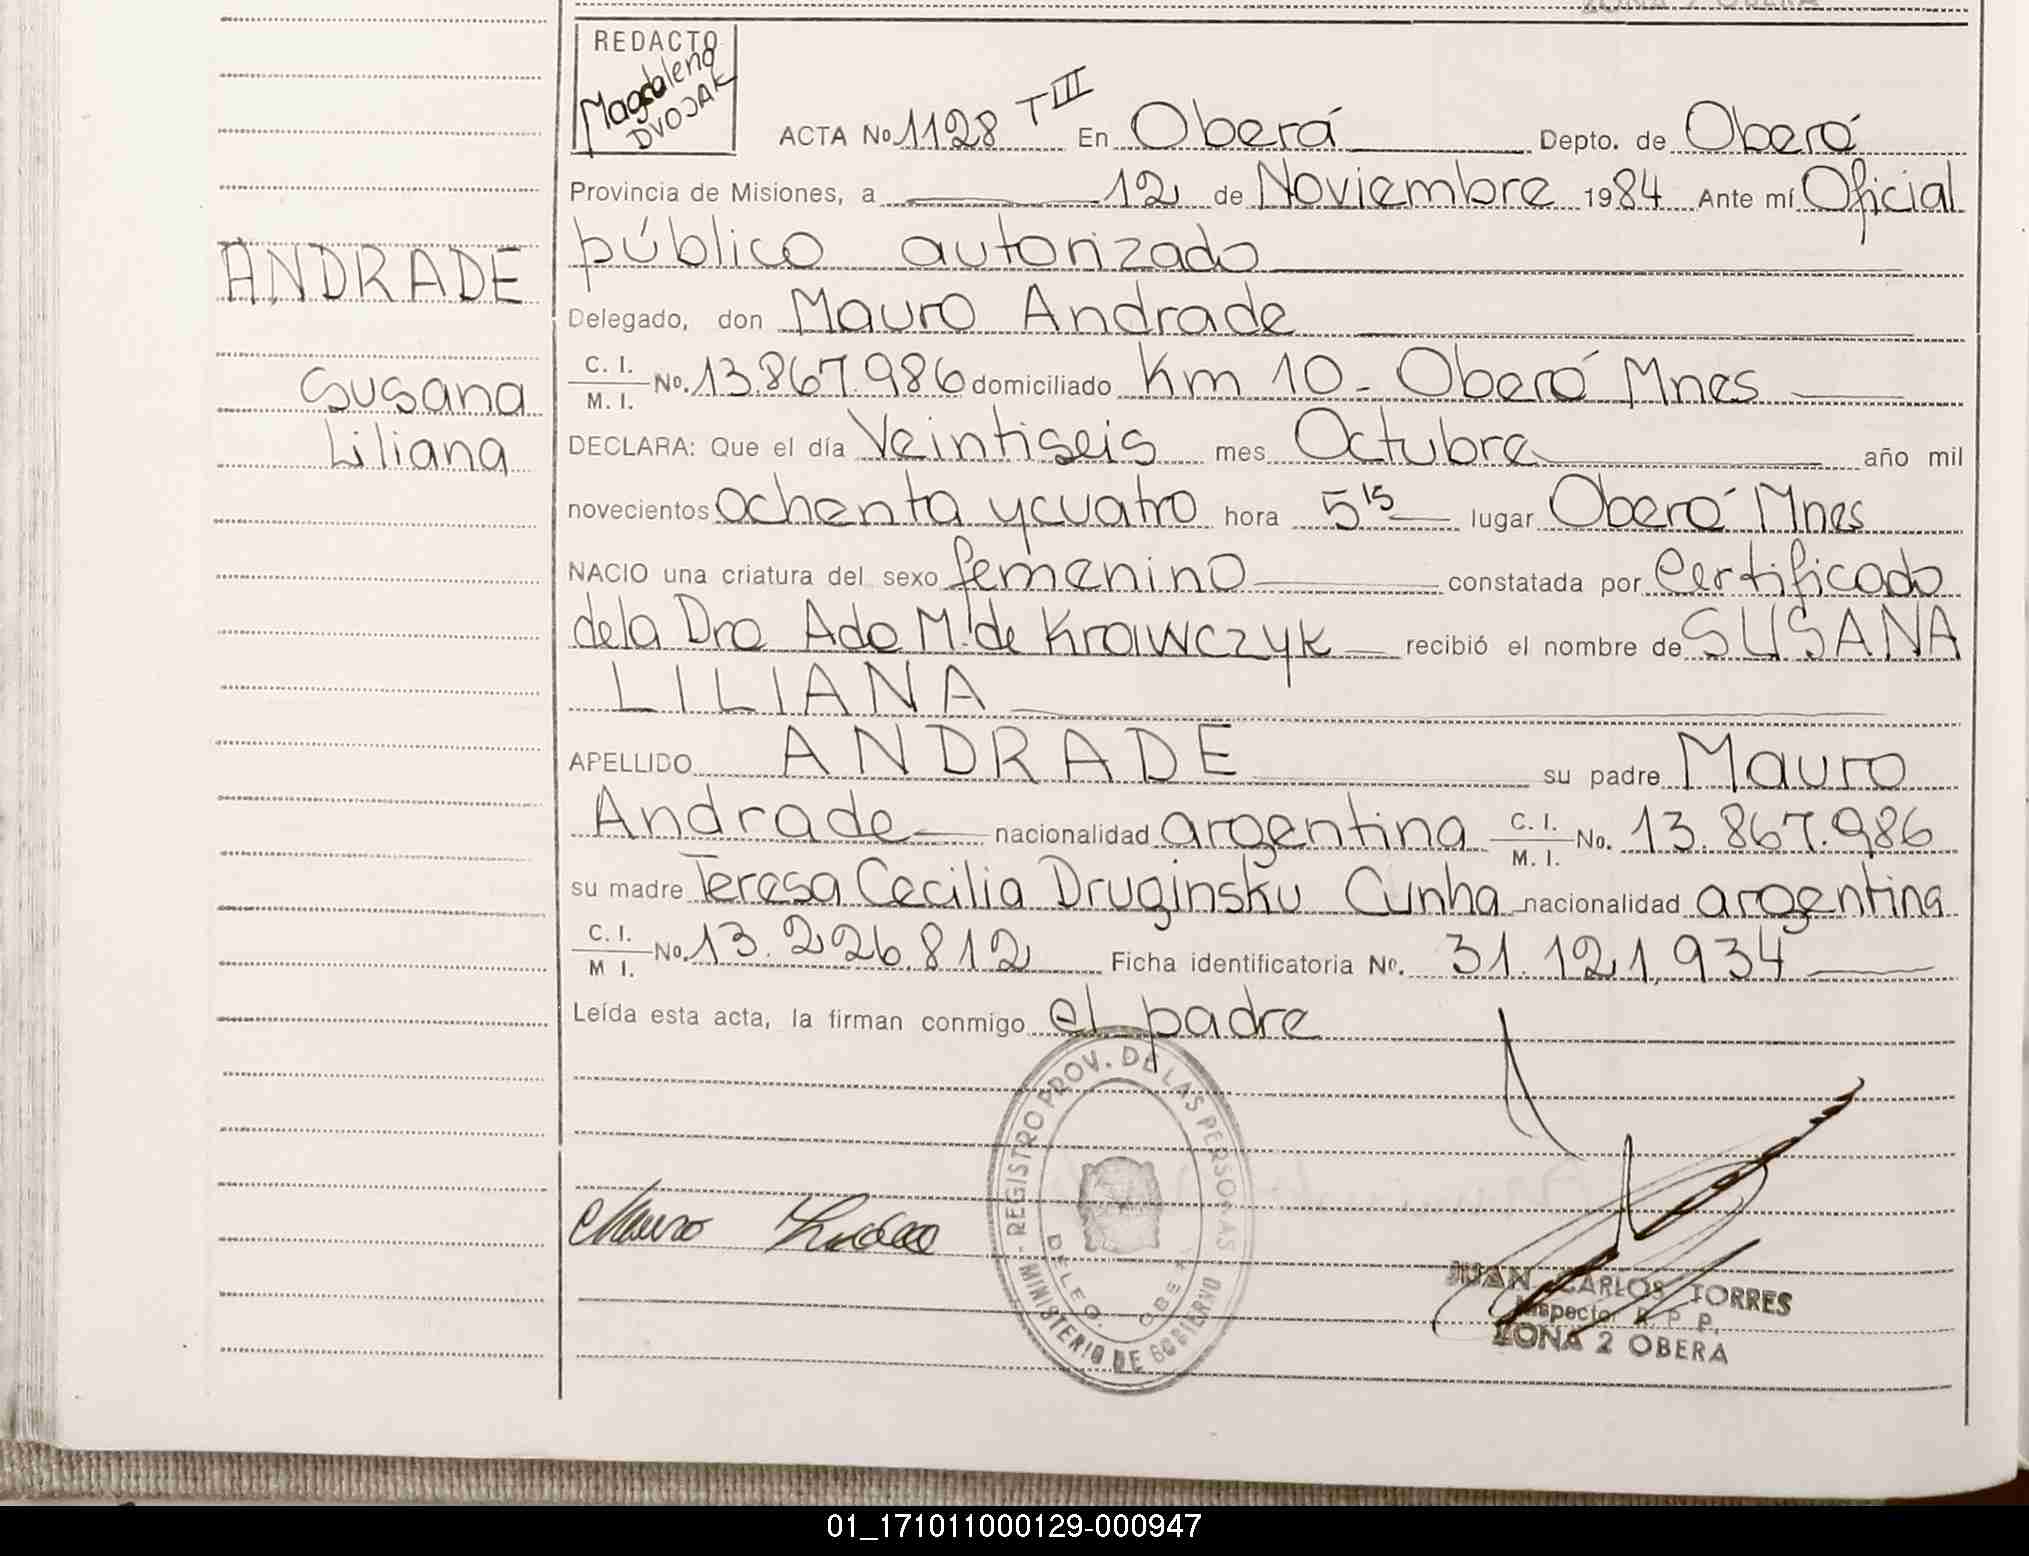 ZONA 2 OBERA
REDACTO
Magdalena
DVOJAK
ACTA No 1128 T III En Oberá Depto. de Oberá
Provincia de Misiones, a 12 de Noviembre 1984 Ante mí Oficial
público autorizado
ANDRADE
Delegado, don Mauro Andrade
C. I.
M. I. No. 13.867.986 domiciliado Km 10 - Oberá Mnes
Susana
Liliana
DECLARA: Que el día Veintiseis mes Octubre año mil
novecientos ochenta y cuatro hora 5 15 lugar Oberá Mnes
NACIO una criatura del sexo femenino constatada por Certificado
de la Dra Ada M. de Krawczyk recibió el nombre de SUSANA
LILIANA
APELLIDO ANDRADE su padre Mauro
Andrade nacionalidad argentina C. I. M. I. No. 13.867.986
su madre Teresa Cecilia Druginsku Cunha nacionalidad argentina
C. I. M I. No. 13.226.812 Ficha identificatoria No. 31.121.934
Leída esta acta, la firman conmigo el padre
REGISTRO PROV. DE LAS PERSONAS
MINISTERIO DE GOBIERNO
DELEG. OBERA
Mauro Andrade
JUAN CARLOS TORRES
Inspector R. P. P.
ZONA 2 OBERA
01_171011000129-000947